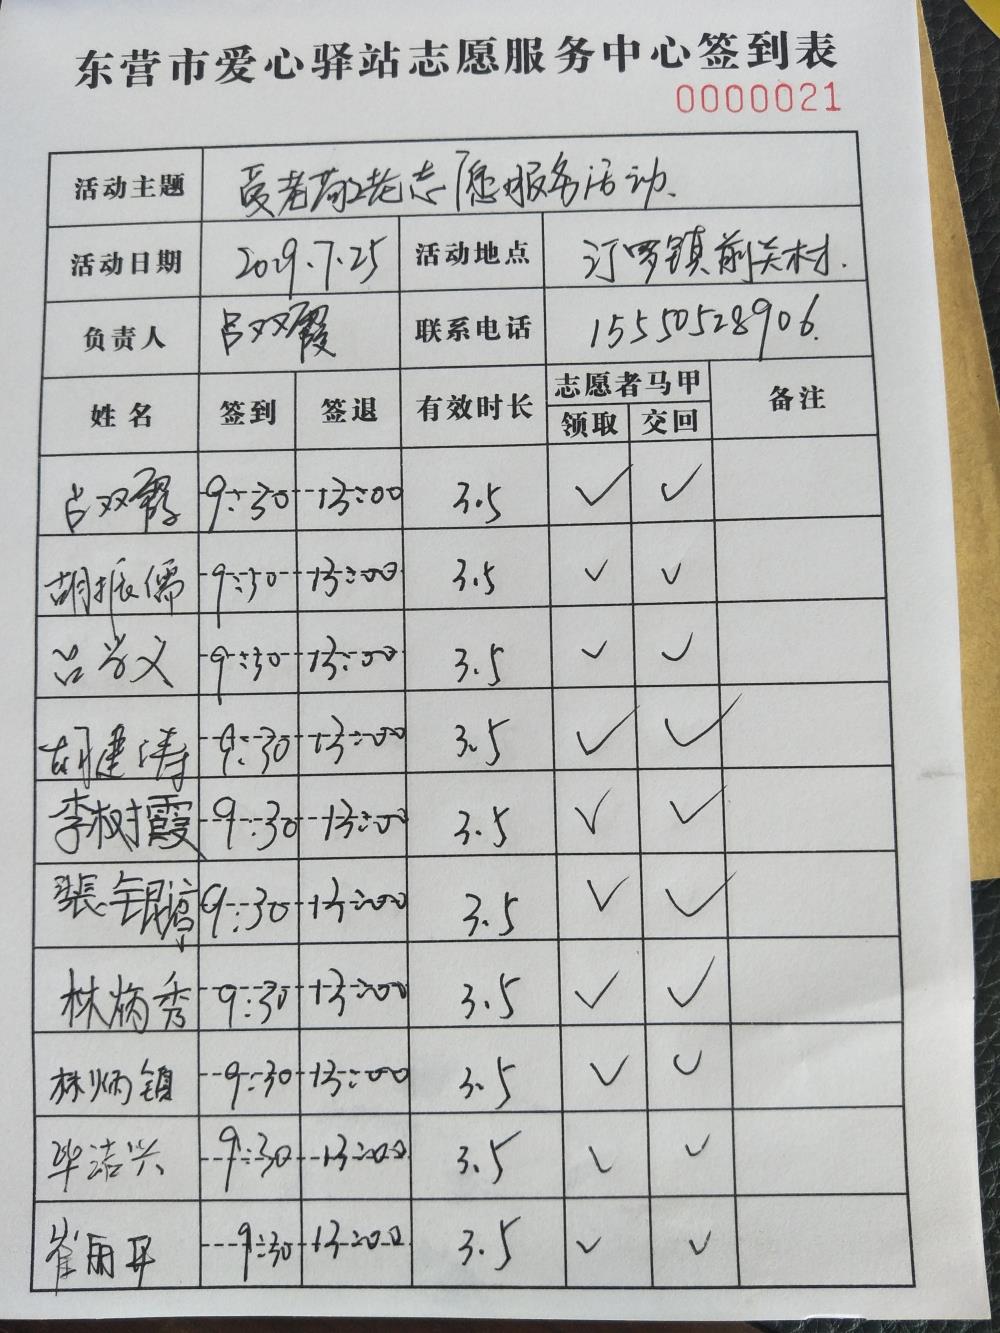 东营市爱心驿站志愿服务中心签到表
0000021
活动主题 爱老敬老志愿服务活动.
活动日期 2019.7.25 活动地点 汀罗镇前关村.
负责人 吕双霞 联系电话 15550528906.
姓名 签到 签退 有效时长 志愿者马甲 备注
领取 交回
吕双霞 9:30 13:00 3.5 ✓ ✓
胡振儒 9:30 13:00 3.5 ✓ ✓
吕学义 9:30 13:00 3.5 ✓ ✓
胡建涛 9:30 13:00 3.5 ✓ ✓
李树霞 9:30 13:00 3.5 ✓ ✓
張银 9:30 13:00 3.5 ✓ ✓
林炳秀 9:30 13:00 3.5 ✓ ✓
林炳镇 9:30 13:00 3.5 ✓ ✓
毕洁兴 9:30 13:00 3.5 ✓ ✓
崔丽丹 9:30 13:00 3.5 ✓ ✓